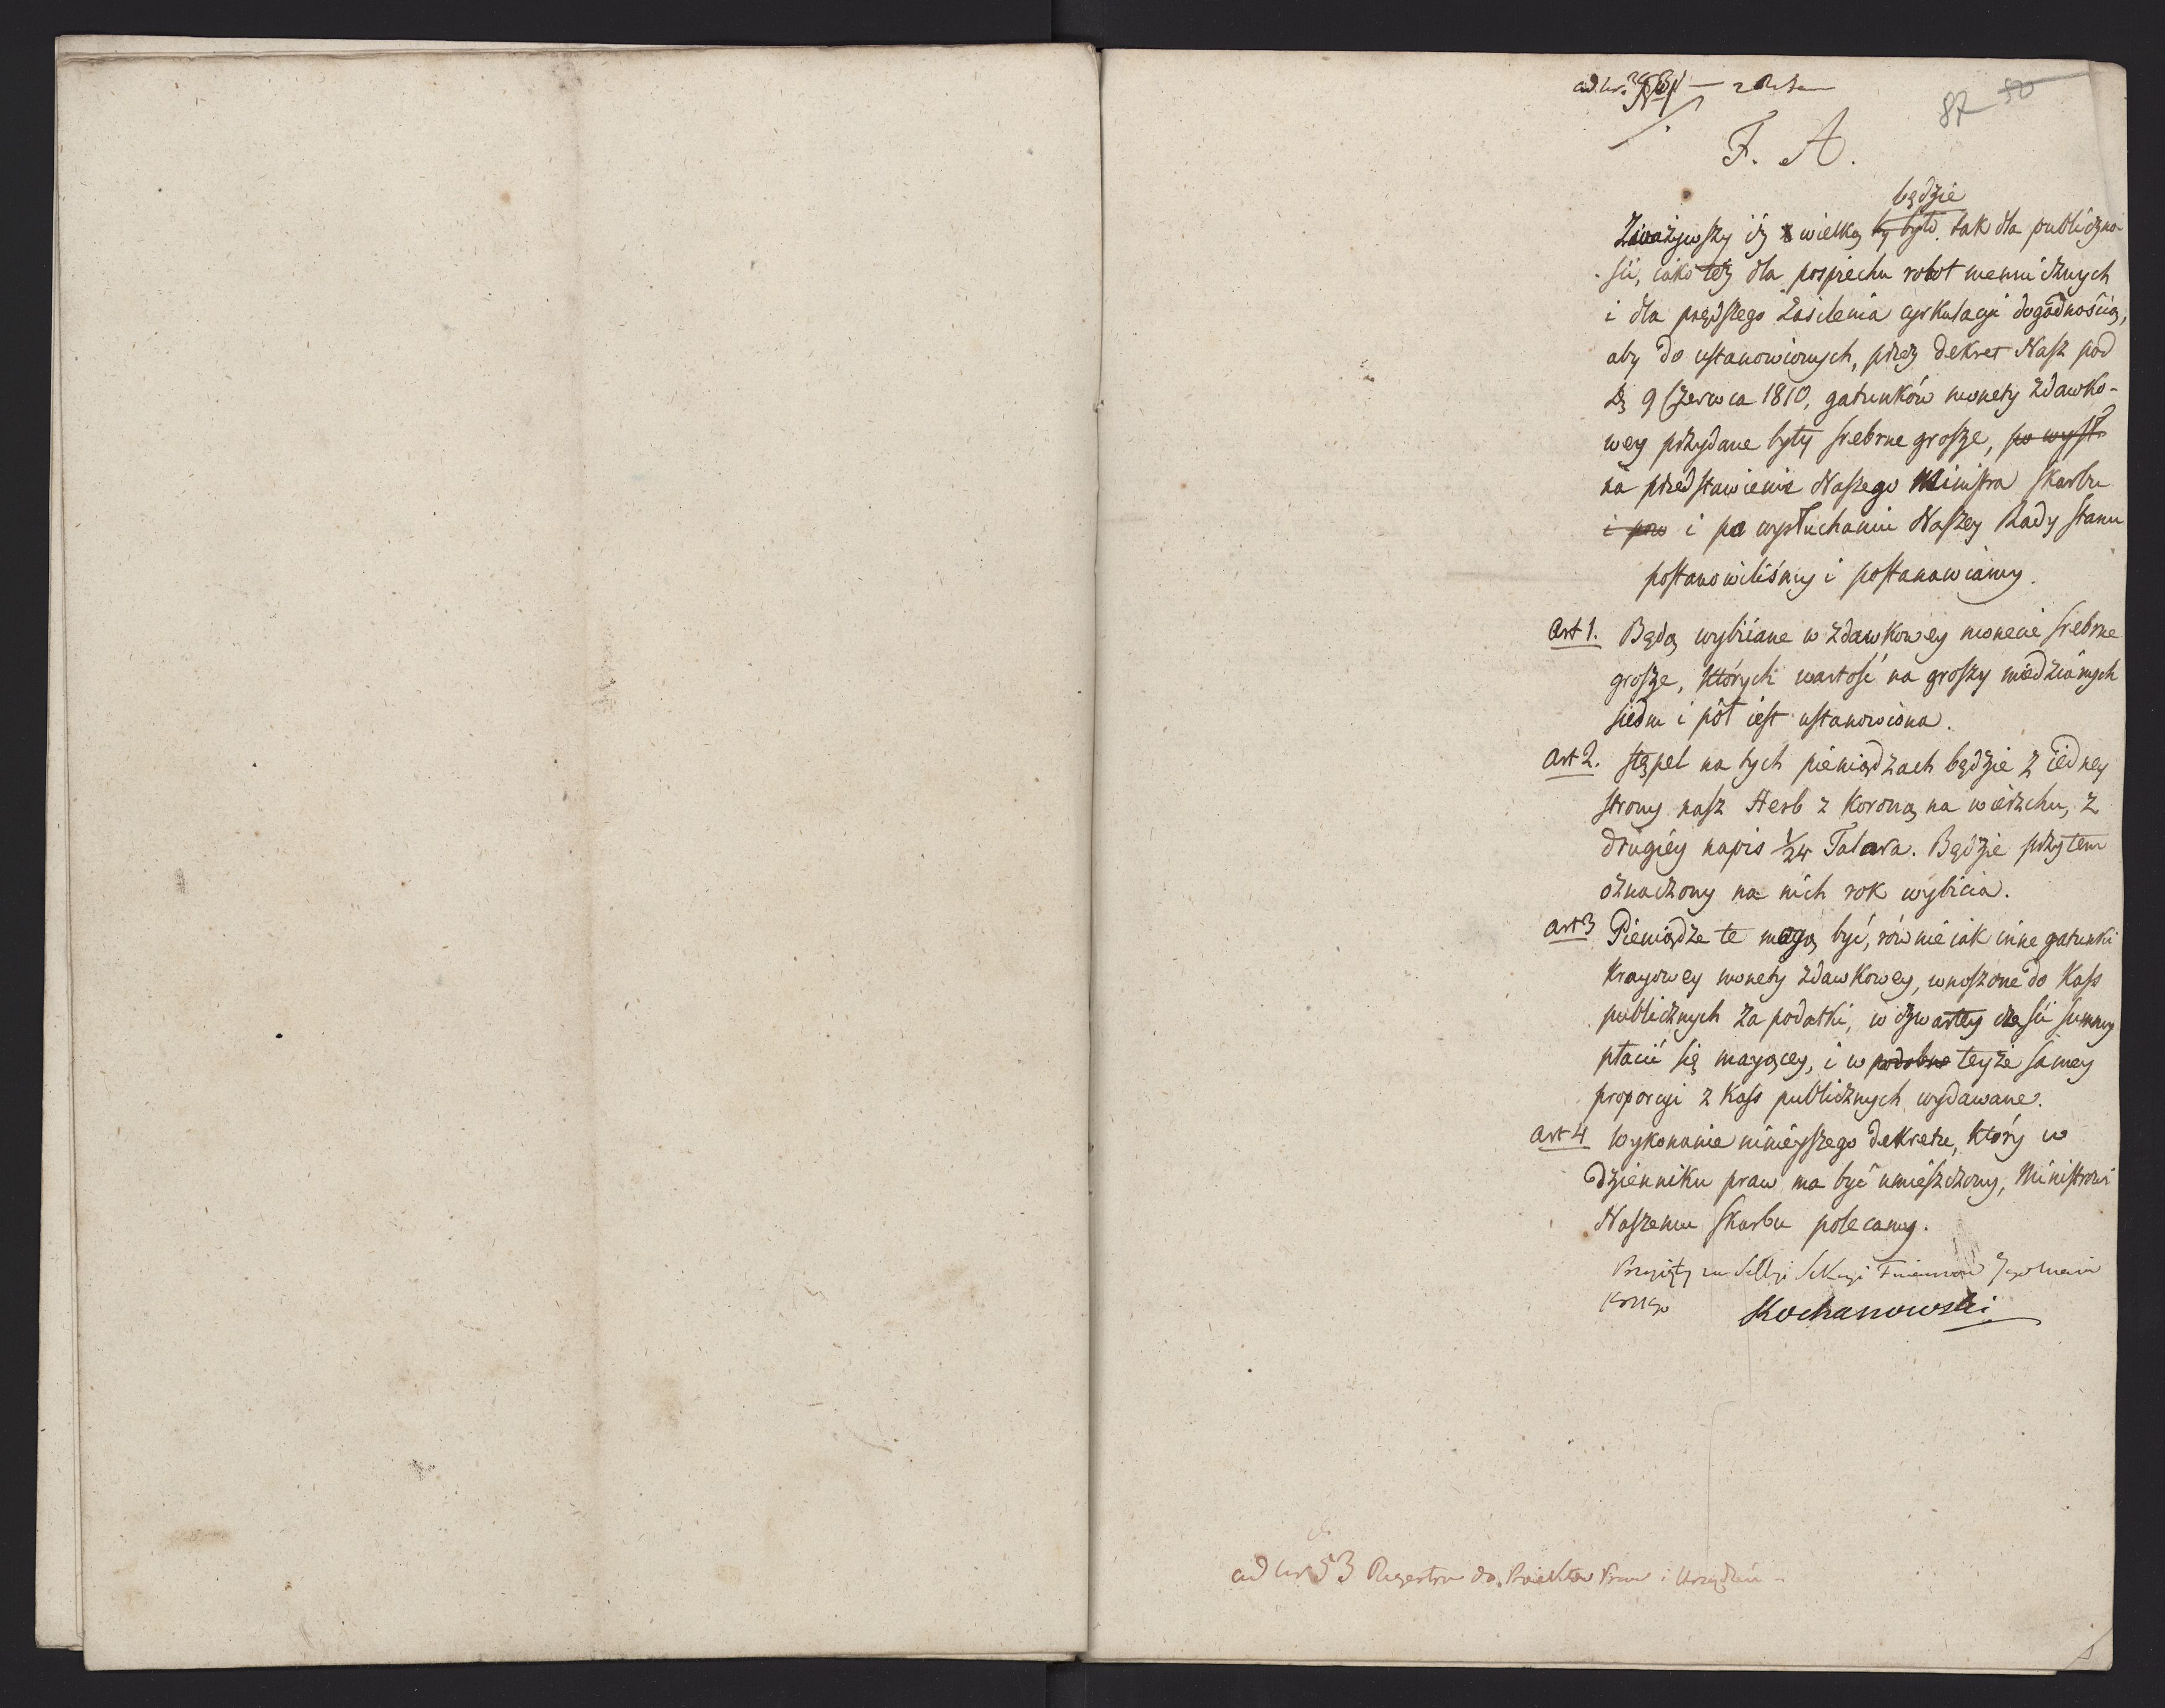 87 50
F. A.
będzie
Zważywszy iż wielką by było tak dla publiczno-
ści, iako też dla pospiechu robot menniczych
i dla prędszego zasilenia cyrkulacyi dogodnością,
aby do ustanowionych, przez dekret Nasz pod
D. 9 Czerwca 1810, gatunków monety zdawko-
wey przydane były srebrne grosze, po wysł.
na przedstawienie Naszego Ministra Skarbu
i po i po wysłuchaniu Naszey Rady Stanu
postanowiliśmy i postanawiamy.
Art 1. Będą wybiiane w zdawkowey monecie srebrne
grosze, których wartość na groszy miedzianych
siedm i pół iest ustanowiona.
Art 2. Stępel na tych pieniądzach będzie z iedney
strony nasz Herb z Koroną na wierzchu, z
drugiéy napis 1/24 Talara. Będzie przytem
oznaczony na nich rok wybicia.
Art 3 Pieniądze te mogą być, równie iak inne gatunki
Krayowey monety zdawkowey, wnoszone do Kass
publicznych za podatki, w czwartey części summy
płacić się maiącey, i w podobne teyże samey
proporcyi z Kass publicznych wydawane.
Art 4 Wykonanie ninieyszego dekretu, który w
dzienniku praw ma być umieszczony, Ministrowi
Naszemu Skarbu polecamy.
Przyięty na Sessyi Sekcyi
Kochanowski
ad Nr 53 Regestru do Proiektów Praw i Urządzeń